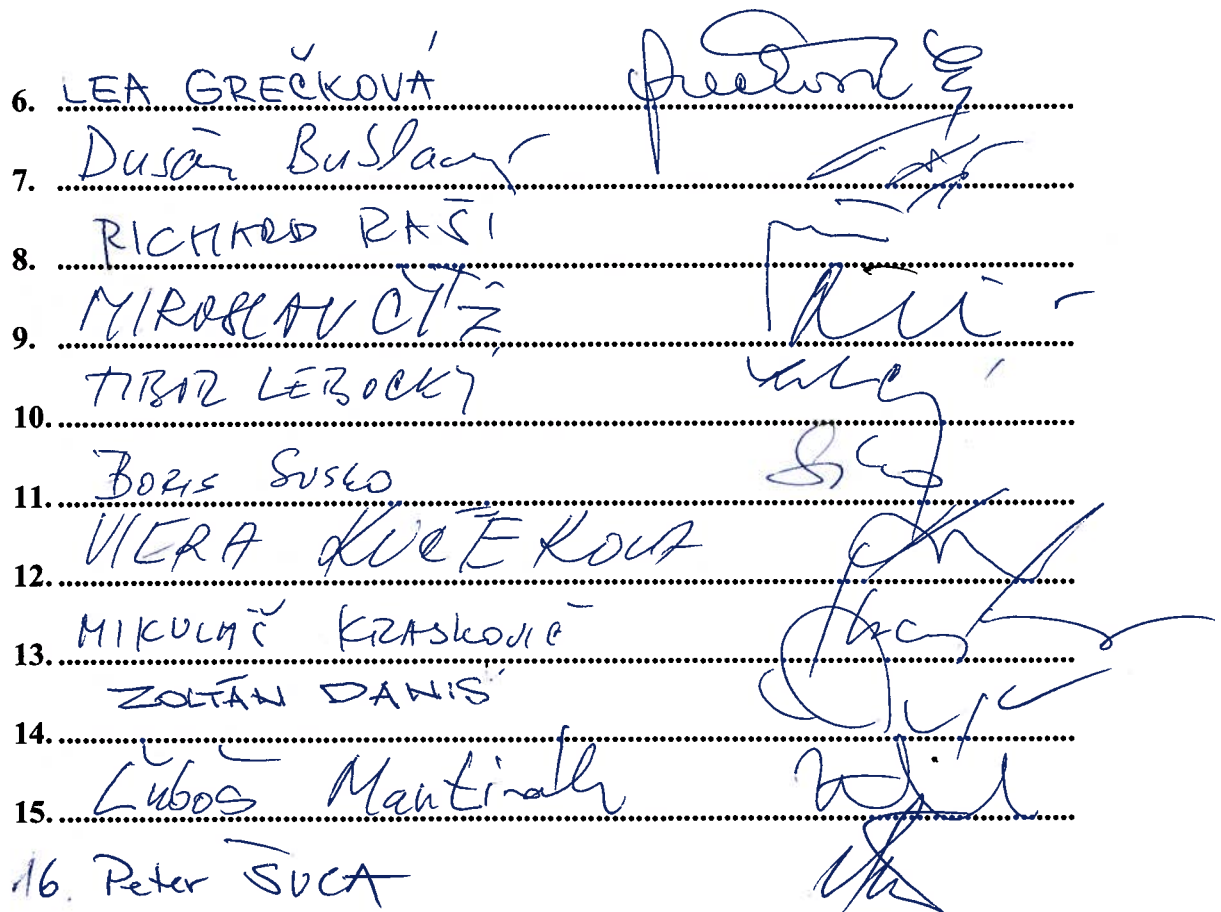 6. LEA GREČKOVÁ
7. Dušan
8. RICHARD RAŠI
9. MIROSLAV ČÍŽ
10. TIBOR LEBOCKÝ
11. BORIS SUSKO
12. VIERA KUČEROVÁ
13. MIKULÁŠ KRASKOVIČ
14. ZOLTÁN DANIŠ
15. Ľuboš Martinák
16. Peter ŠUCA